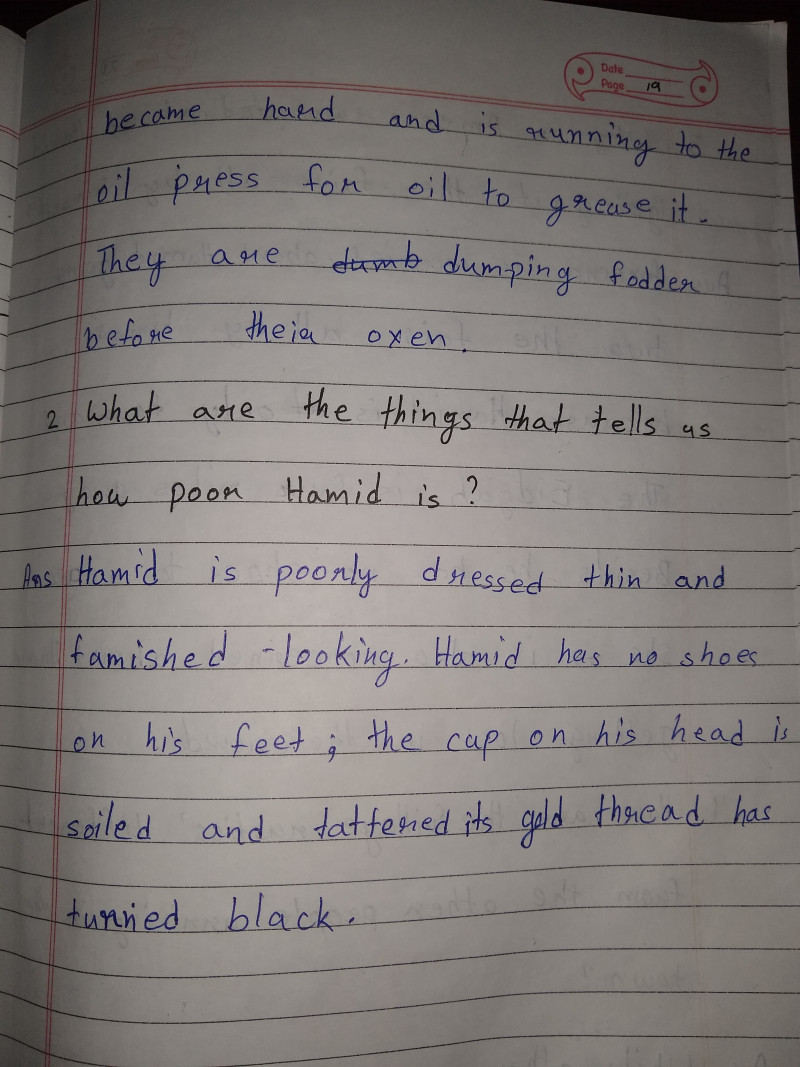 Date
Page 19
became hard and is running to the
oil press for oil to grease it.
They are dumb dumping fodder
before their oxen.
2 What are the things that tells us
how poor Hamid is ?
Ans Hamid is poorly dressed thin and
famished - looking. Hamid has no shoes
on his feet ; the cap on his head is
soiled and tattered its gold thread has
turned black.